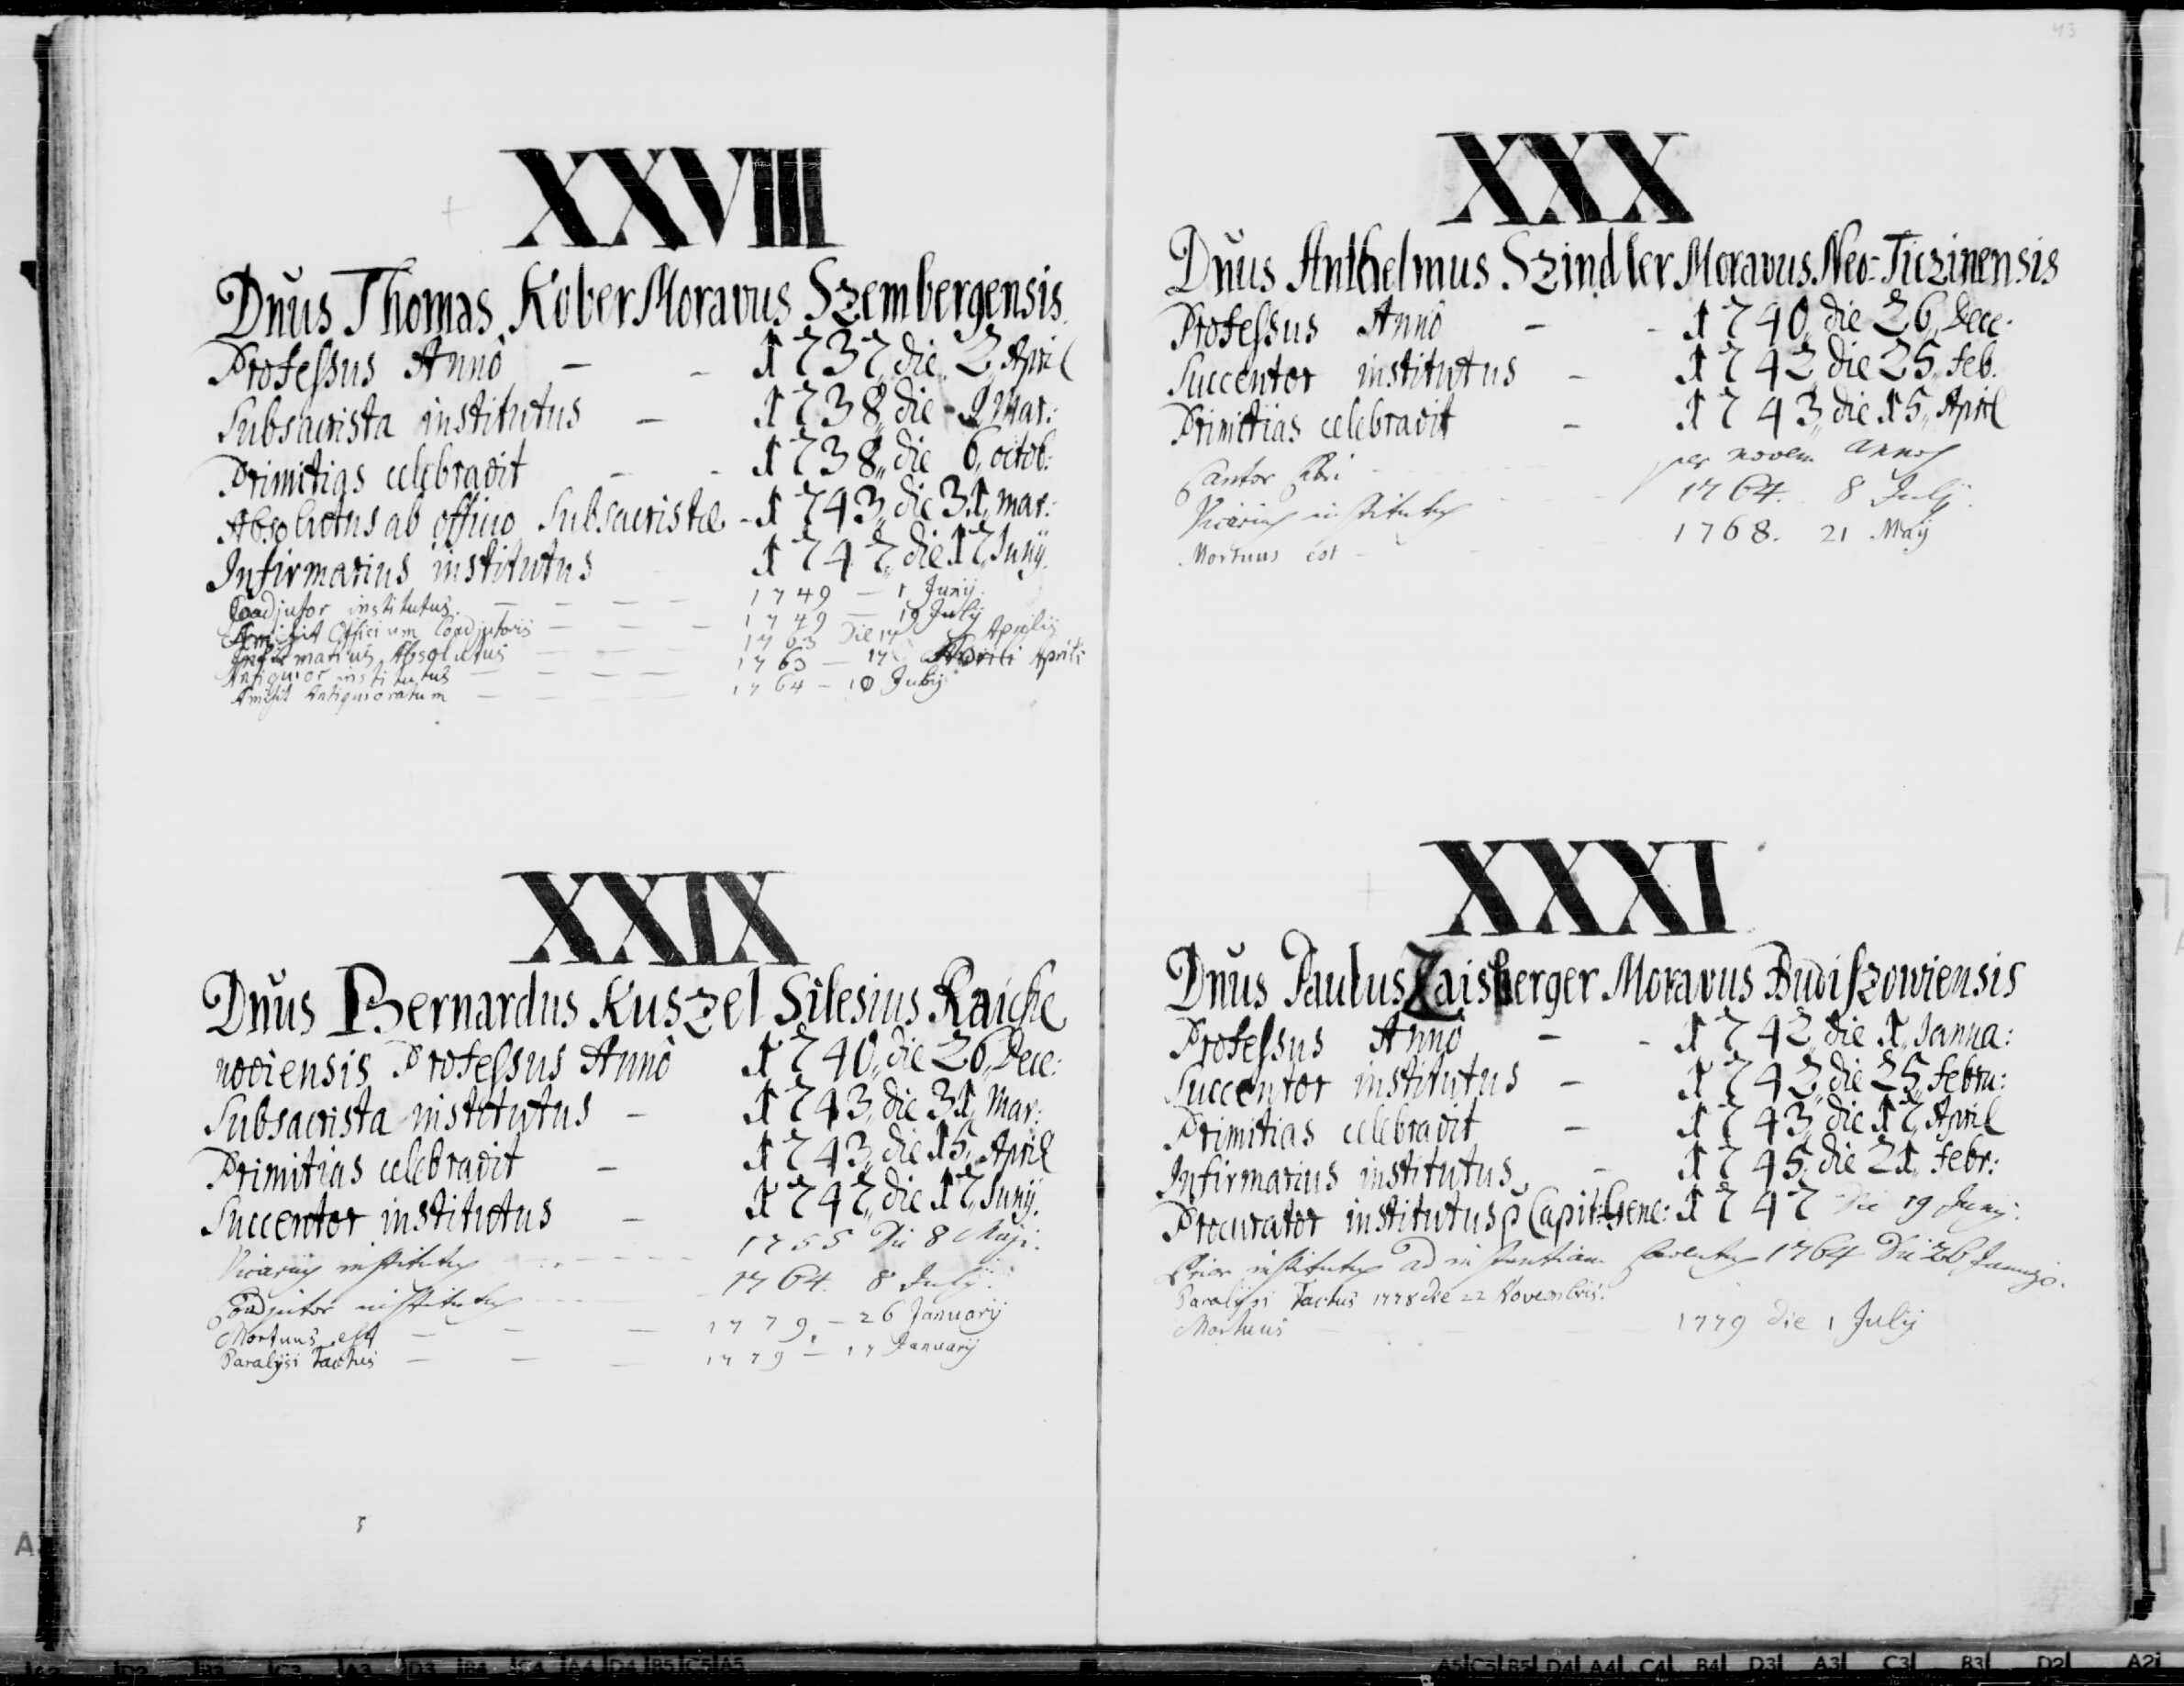 XXVIII
Dnus Thomas Kober Moravus Szembergensis
Professus Annô — - 1737,, die 2 April
Subsacrista institutus — 1738,, die 2 Mar:
Primitias celebravit - - 1738,, die 6,, octob:
Absolutus ab officio Subsacristæ - 1743,, die 31,, mar:
Infirmarius institutus 1747,, die 17,, Junÿ.
Coadjutor institutus — — — — 1749 — 1 Junÿ
Amisit Officium Coadjutoris — — — 1749 — 19 Julÿ
Infirmarius Absolutus — — — 1763 Die 17 Aprilis
Antiquior institutus — — — — 1763 — 17 Aprili
Amisit Antiquioratum — — — — 1764 — 10 Julÿ
XXIX
Dnus Bernardus Kuszel Silesius Raiche
noviensis Professus Annô 1740,, die 26,, Dece:
Subsacrista institutus — 1743,, die 31,, Mar:
Primitias celebravit — 1743,, die 15,, April
Succentor institutus — 1747,, die 17,, Junÿ.
Vicarius institutus 1755 Die 8 Maji.
Coadjutor institutus 1764. 8 Julÿ.
Mortuus est — — — 1779. — 26 Januarÿ
Paralÿsi Tactus — — — 1779 — 17 Januarÿ
43
XXX
Dnus Anthelmus Szindler Moravus Neo-Ticzinensis
Professus Annô - - 1740,, die 26,, Dece:
Succentor institutus - 1742,, die 25,, feb.
Primitias celebravit - 1743,, die 15,, April
Cantor per novem annos
Vicarius institutus 1764. 8 Julÿ.
Mortuus est 1768. 21 Maÿ
XXXI
Dnus Paulus Zaisberger Moravus Budiszowiensis
Professus Annô - - 1742,, die 1,, Janna:
Succentor institutus - 1742,, die 25,, febru:
Primitias celebravit - 1743,, die 17,, April
Infirmarius institutus - 1745,, die 21,, febr:
Procurator institutus p Capit: Gene: 1747 Die 19 Junÿ.
Prior institutus ad instantiam 1764 Die 26
Paralÿsi Tactus 1778 die 22 Novembris.
Mortuus 1779 die 1 Julÿ